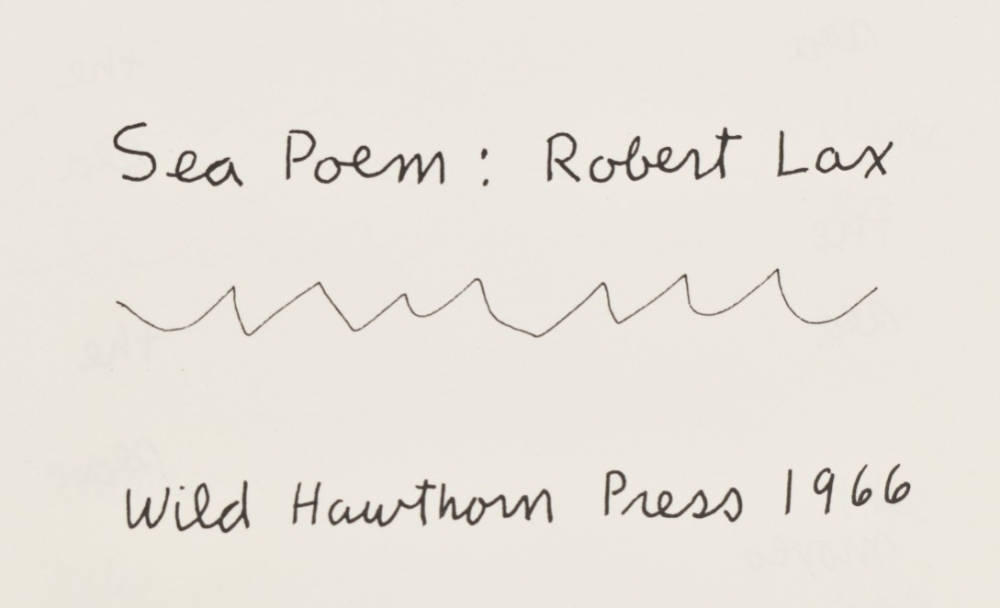 Sea Poem: Robert Lax
Wild Hawthorn Press 1966